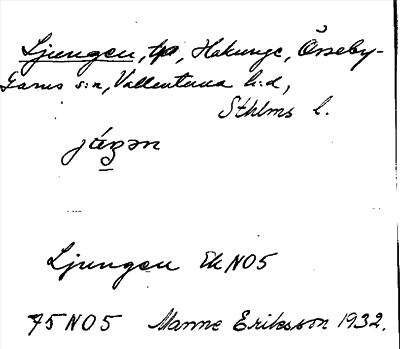 Ljungen, tp, Hakunge, Össeby-
Garns s:n, Vallentuna h:d,
Sthlms l.
Ljungen Ek NO5
75 NO5 Manne Eriksson 1932.